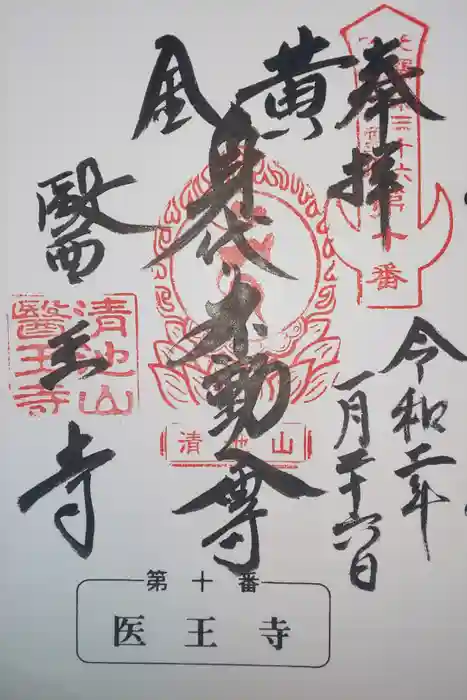 奉拝
三十六
第十番
令和二年
一月二十六日
黄風
身代不動尊
清池山
醫王寺
清池山
醫王寺
第十番
医王寺